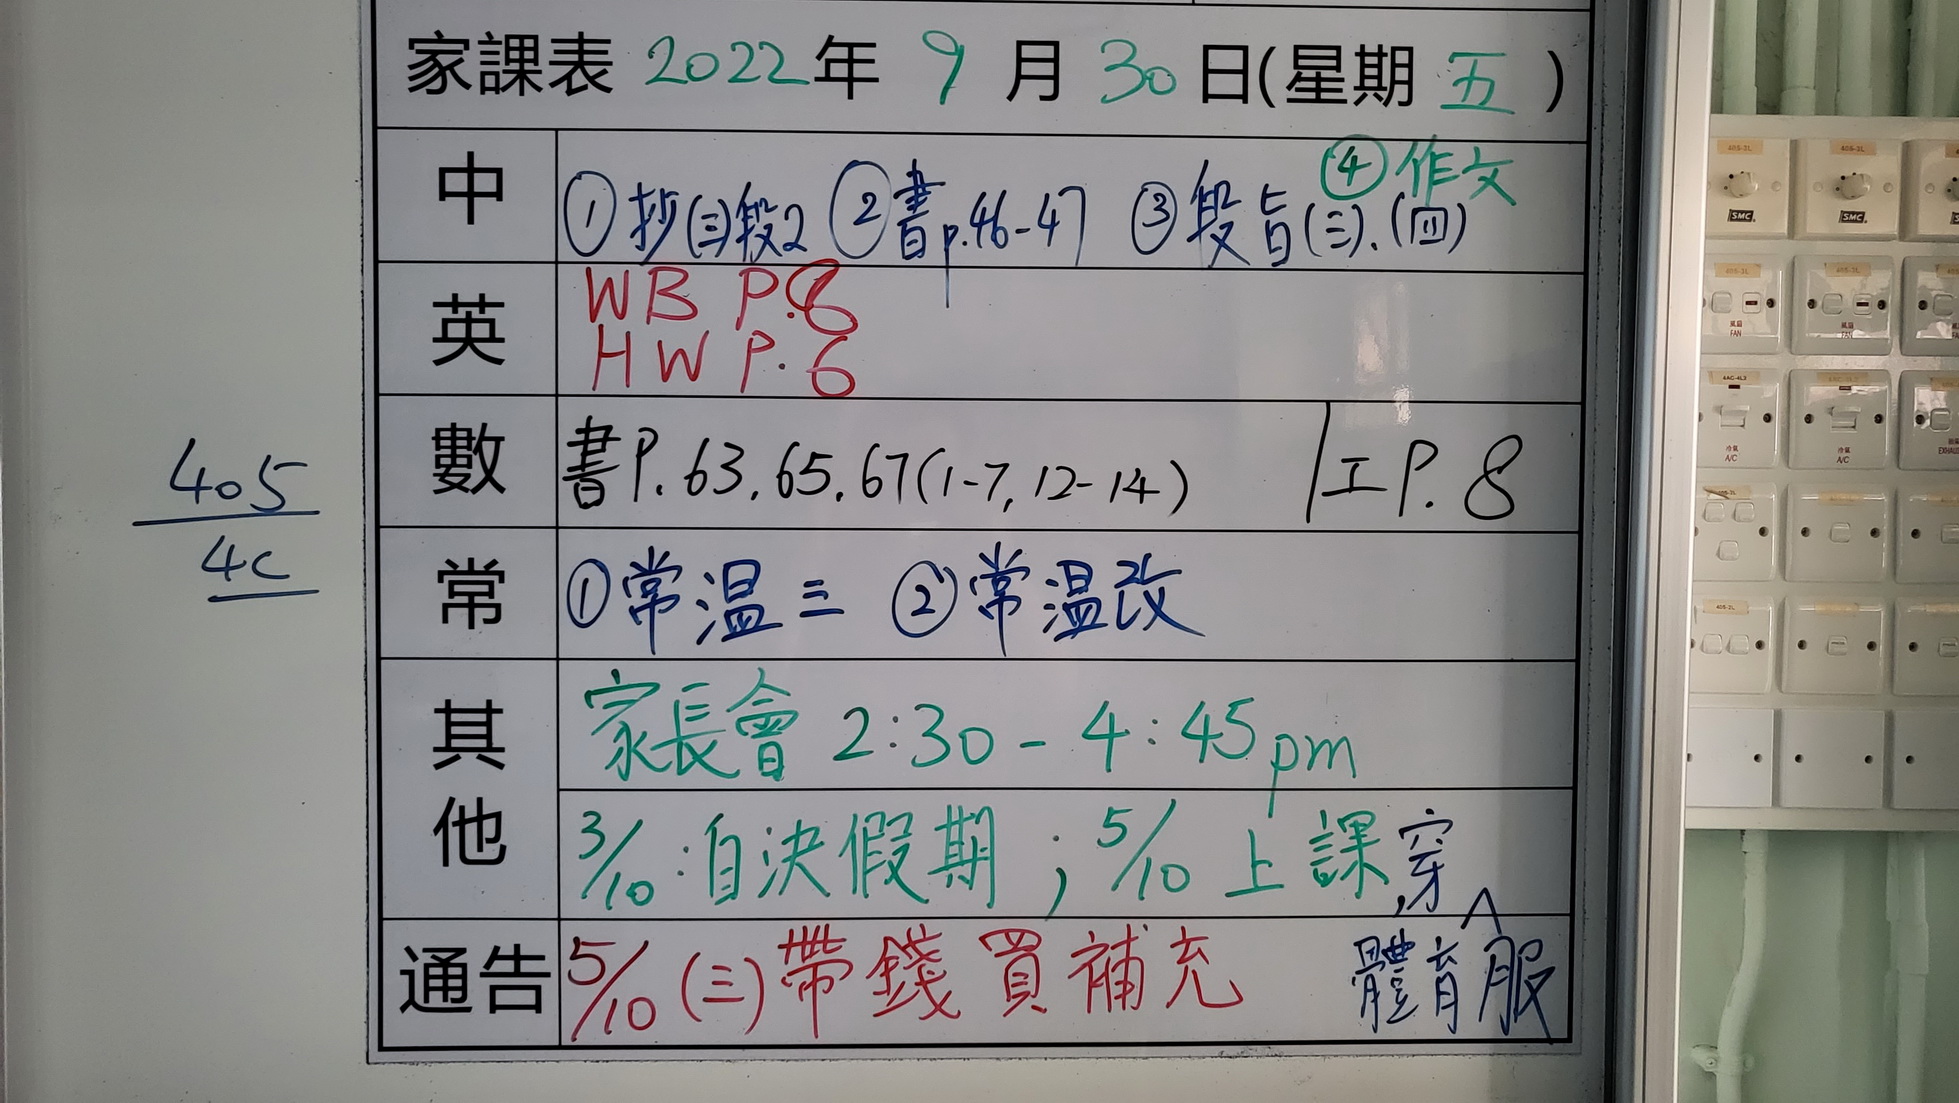 家課表 2022年 9月 30日(星期五)
中
④作文
①抄(三)段2 ②書p.46-47 ③段旨(三).(四)
英
WB P.8
HW P.6
數
書P.63,65,67(1-7,12-14) 工P.8
405
4C
常
①常温三 ②常温改
其他
家長會 2:30-4:45pm
3/10:自決假期;5/10上課,穿
體育服
通告
5/10(三)帶錢買補充
SMC
SMC
風扇
FAN
風扇
FAN
冷氣
A/C
冷氣
A/C